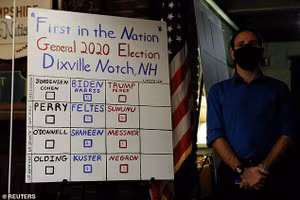 First in the Nation
General 2020 Election
Dixville Notch, NH
JORGENSEN
COHEN
BIDEN
HARRIS
TRUMP
PENCE
PERRY
FELTES
SUNUNU
O'DONNELL
SHAHEEN
MESSNER
OLDING
KUSTER
NEGRON
© REUTERS